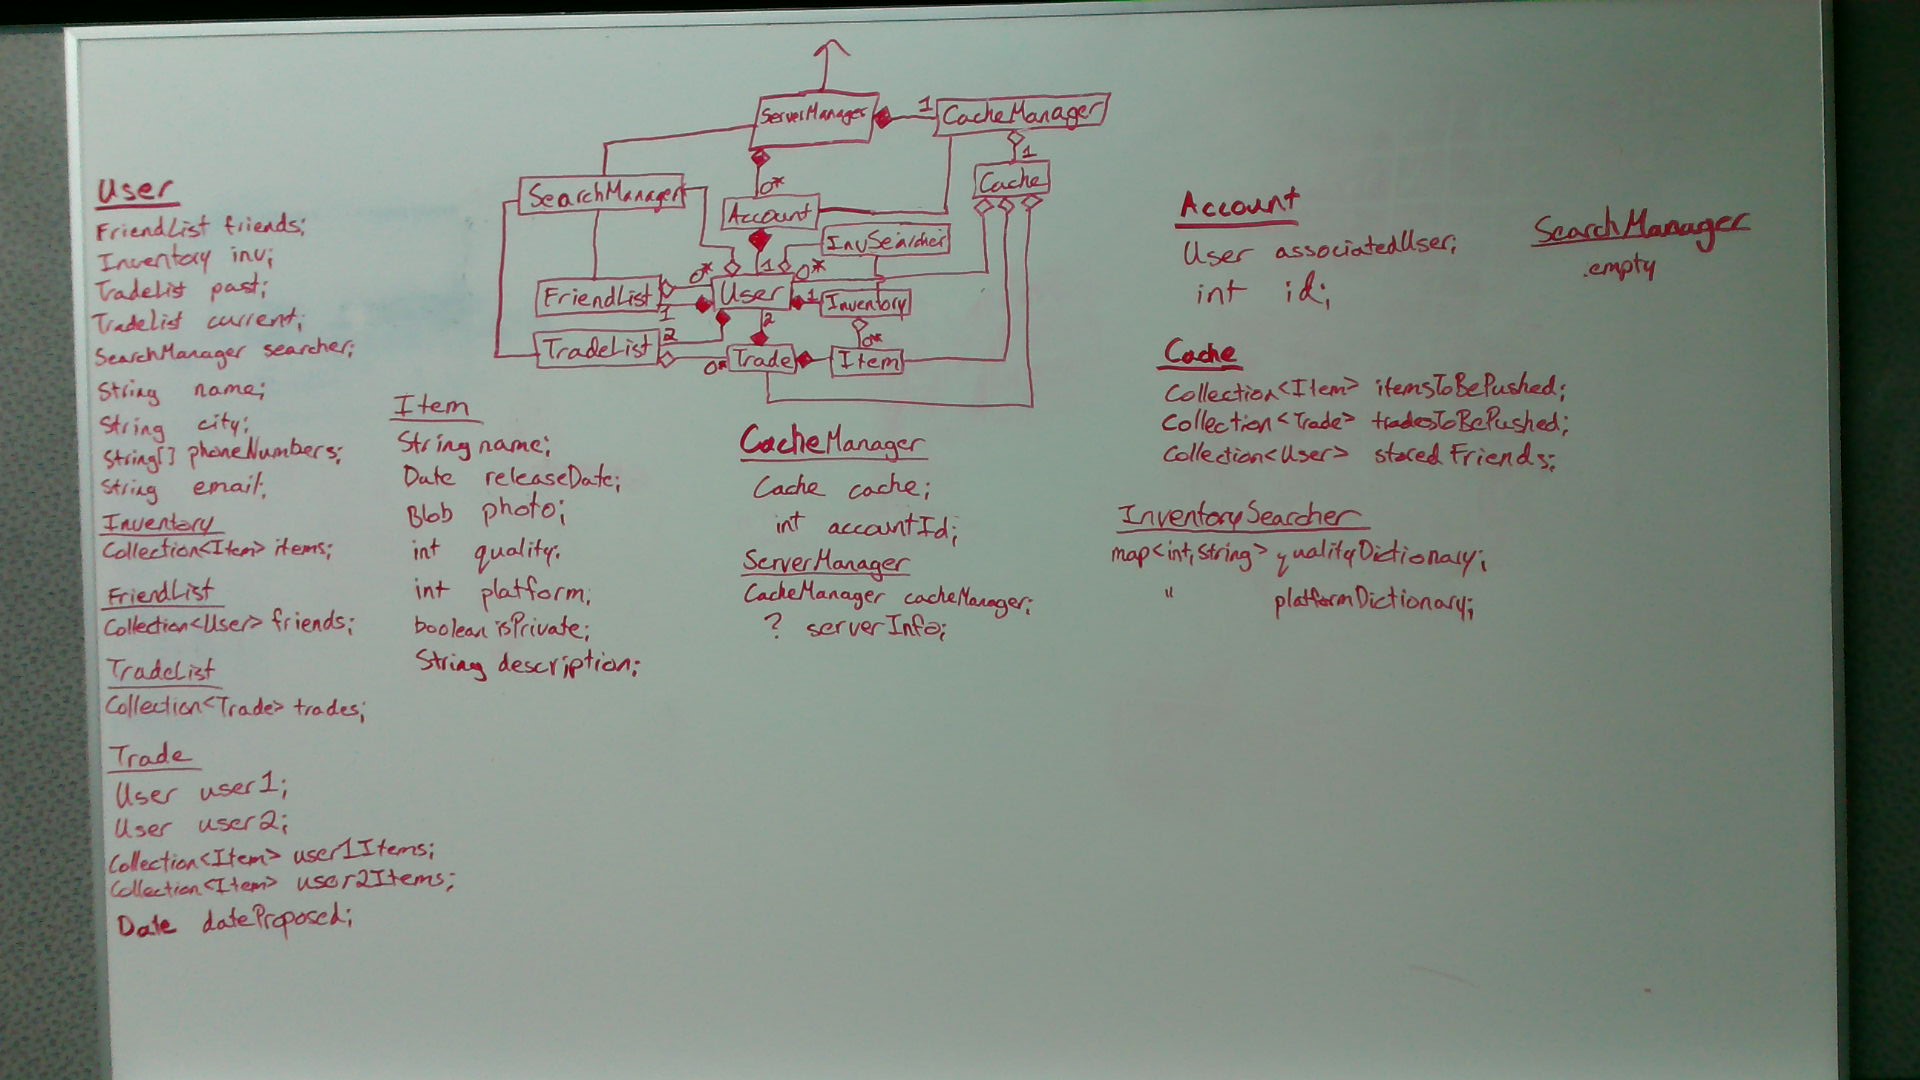 ServerManager
1
CacheManager
1
Cache
0*
SearchManager
Account
InvSearcher
0*
1
0*
FriendList
User
1
Inventory
1
2
2
0*
TradeList
0*
Trade
Item
User
FriendList friends;
Inventory inv;
TradeList past;
TradeList current;
SearchManager searcher;
String name;
String city;
String[] phoneNumbers;
String email;
Inventory
Collection<Item> items;
FriendList
Collection<User> friends;
TradeList
Collection<Trade> trades;
Trade
User user1;
User user2;
Collection<Item> user1Items;
Collection<Item> user2Items;
Date dateProposed;
Item
String name;
Date releaseDate;
Blob photo;
int quality;
int platform;
boolean isPrivate;
String description;
CacheManager
Cache cache;
int accountId;
ServerManager
CacheManager cacheManager;
? serverInfo;
Account
User associatedUser;
int id;
SearchManager
.empty
Cache
Collection<Item> itemsToBePushed;
Collection<Trade> tradesToBePushed;
Collection<User> storedFriends;
InventorySearcher
map<int,String> qualityDictionary;
" platformDictionary;